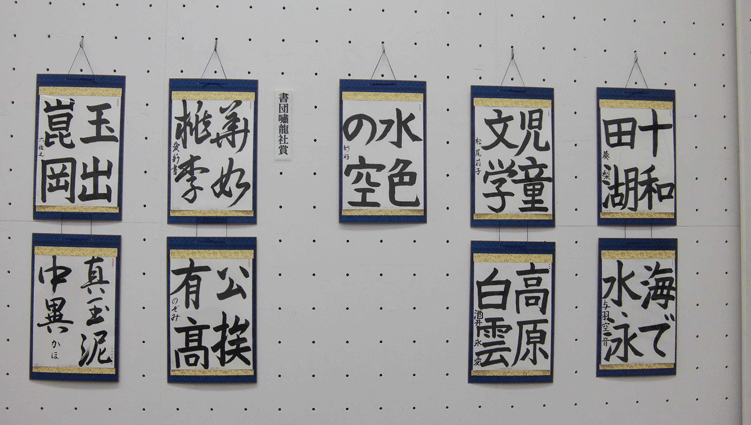 十和
田湖
児童
文学
水色
の空
書団嘯龍社賞
華如
桃李
玉出
崑岡
海で
水泳
高原
白雲
公挨
有髙
のぞみ
真玉泥
中異
かほ